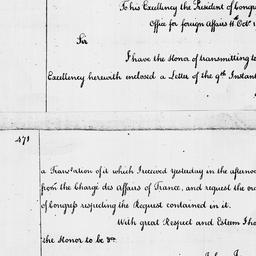 To his Excellency the President of Congre
Office for foreign Affairs 11th Octr 1
Sir
I have the Honor of transmitting to
Excellency herewith enclosed a Letter of the 9th Instant
471
a Translation of it which I received yesterday in the afternoo
from the Chargé des Affairs of France, and request the ord
of Congress respecting the Request contained in it.
With great Respect and Esteem I ha
the Honor to be &c.
John